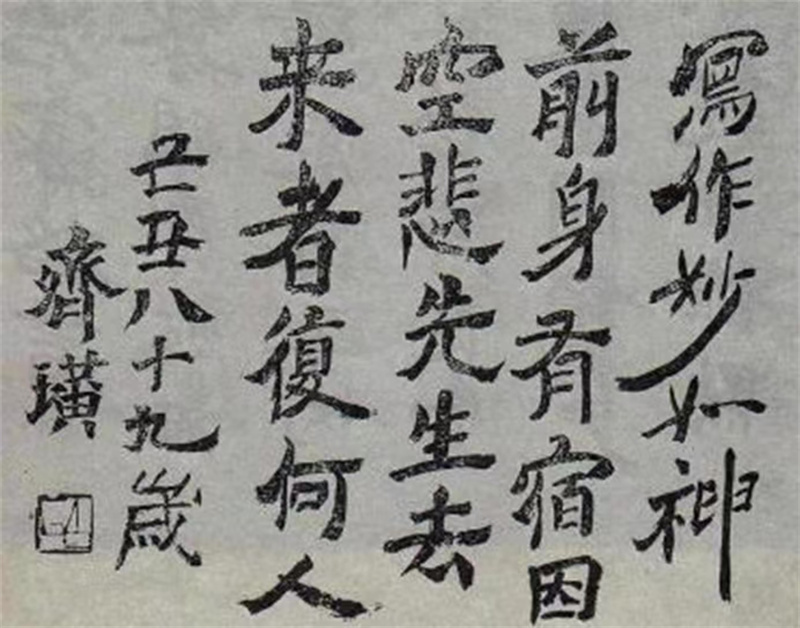 寫作妙如神
前身有宿因
空悲先生去
来者復何人
己丑八十九歲
齊璜